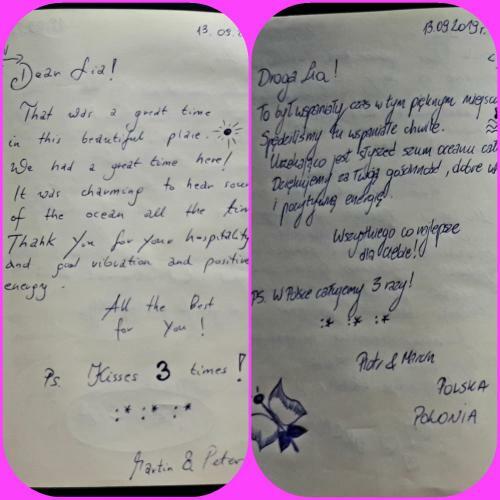 13.09.
Dear Lia!
That was a great time
in this beautiful place.
We had a great time here!
It was charming to hear soun
of the ocean all the tim
Thank You for your hospitality
and good vibration and positive
energy.
All the best
for You!
Ps. Kisses 3 times!
:* :* :*
Martin & Peter
13.09.2019r.
Droga Lia!
To był wspaniały czas w tym pięknym miejscu
Spędziliśmy tu wspaniałe chwile.
Urzekająco jest słyszeć szum oceanu cał
Dziękujemy za Twoją gościnność, dobre w
i pozytywną energię.
Wszystkiego co najlepsze
dla Ciebie!
PS. W Polsce całujemy 3 razy!
:* :* :*
Piotr & Marcin
POLSKA
POLONIA